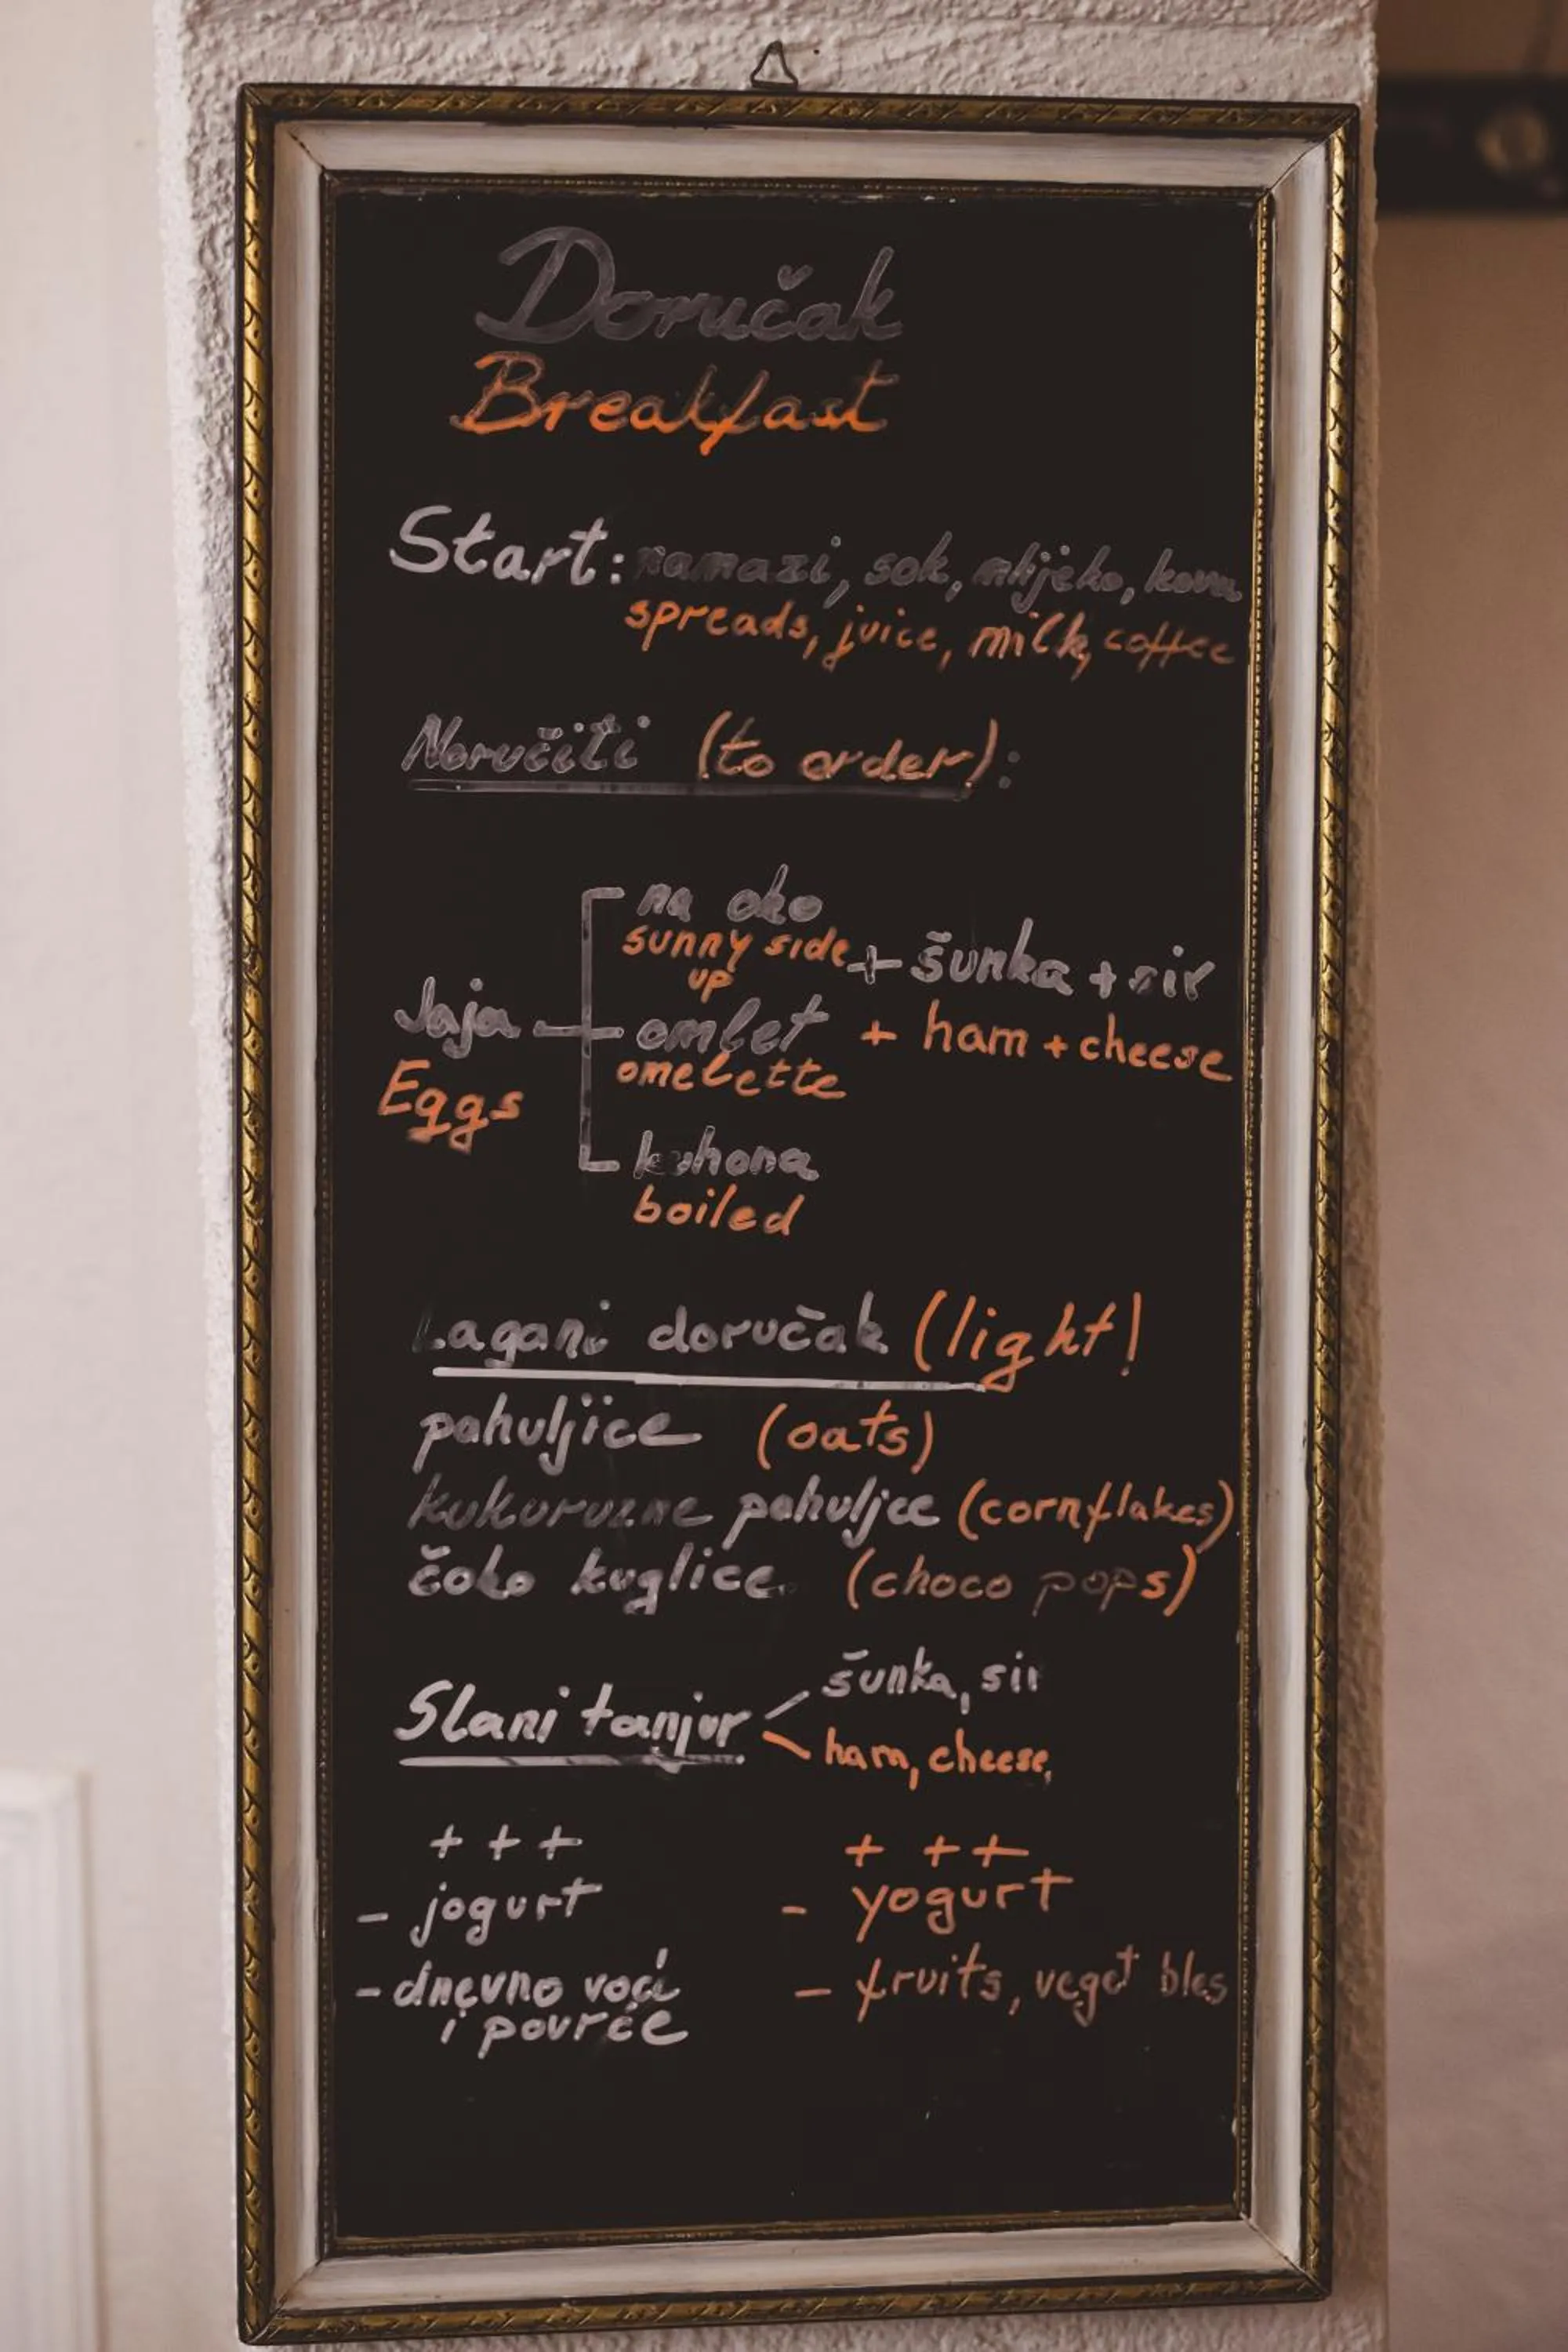 Doručak
Breakfast
Start: namazi, sok, mlijeko, kava
spreads, juice, milk, coffee
Naručiti (to order):
na oko
sunny side
up
+ šunka + sir
Jaja
omlet
+ ham + cheese
Eggs
omelette
kuhana
boiled
Lagani doručak (light)
pahuljice (oats)
kukuruzne pahuljce (cornflakes)
čoko kuglice (choco pops)
Slani tanjur
šunka, sir
ham, cheese,
+ + + + + +
- jogurt - yogurt
- dnevno voće - fruits, veget bles
i povrće